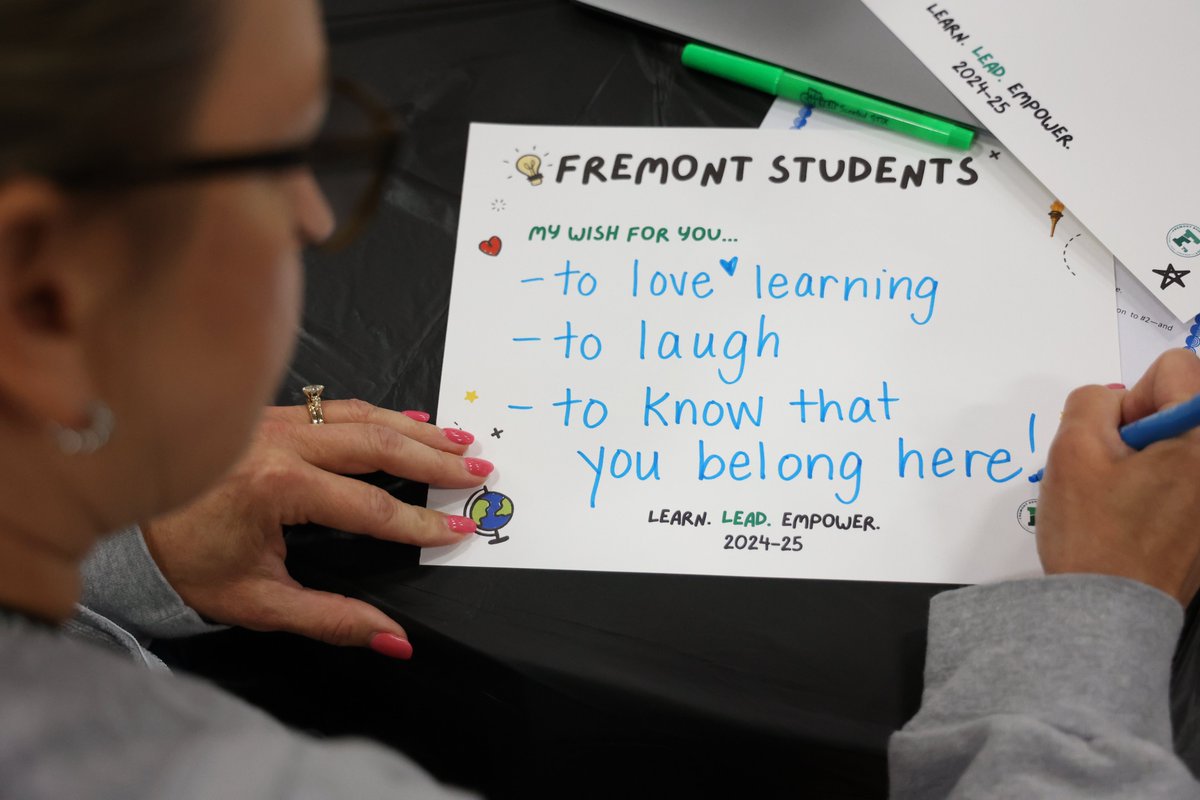 FREMONT STUDENTS
MY WISH FOR YOU...
- to love learning
- to laugh
- to know that
you belong here!
LEARN. LEAD. EMPOWER.
2024-25
LEARN. LEAD. EMPOWER.
2024-25
on to #2—and